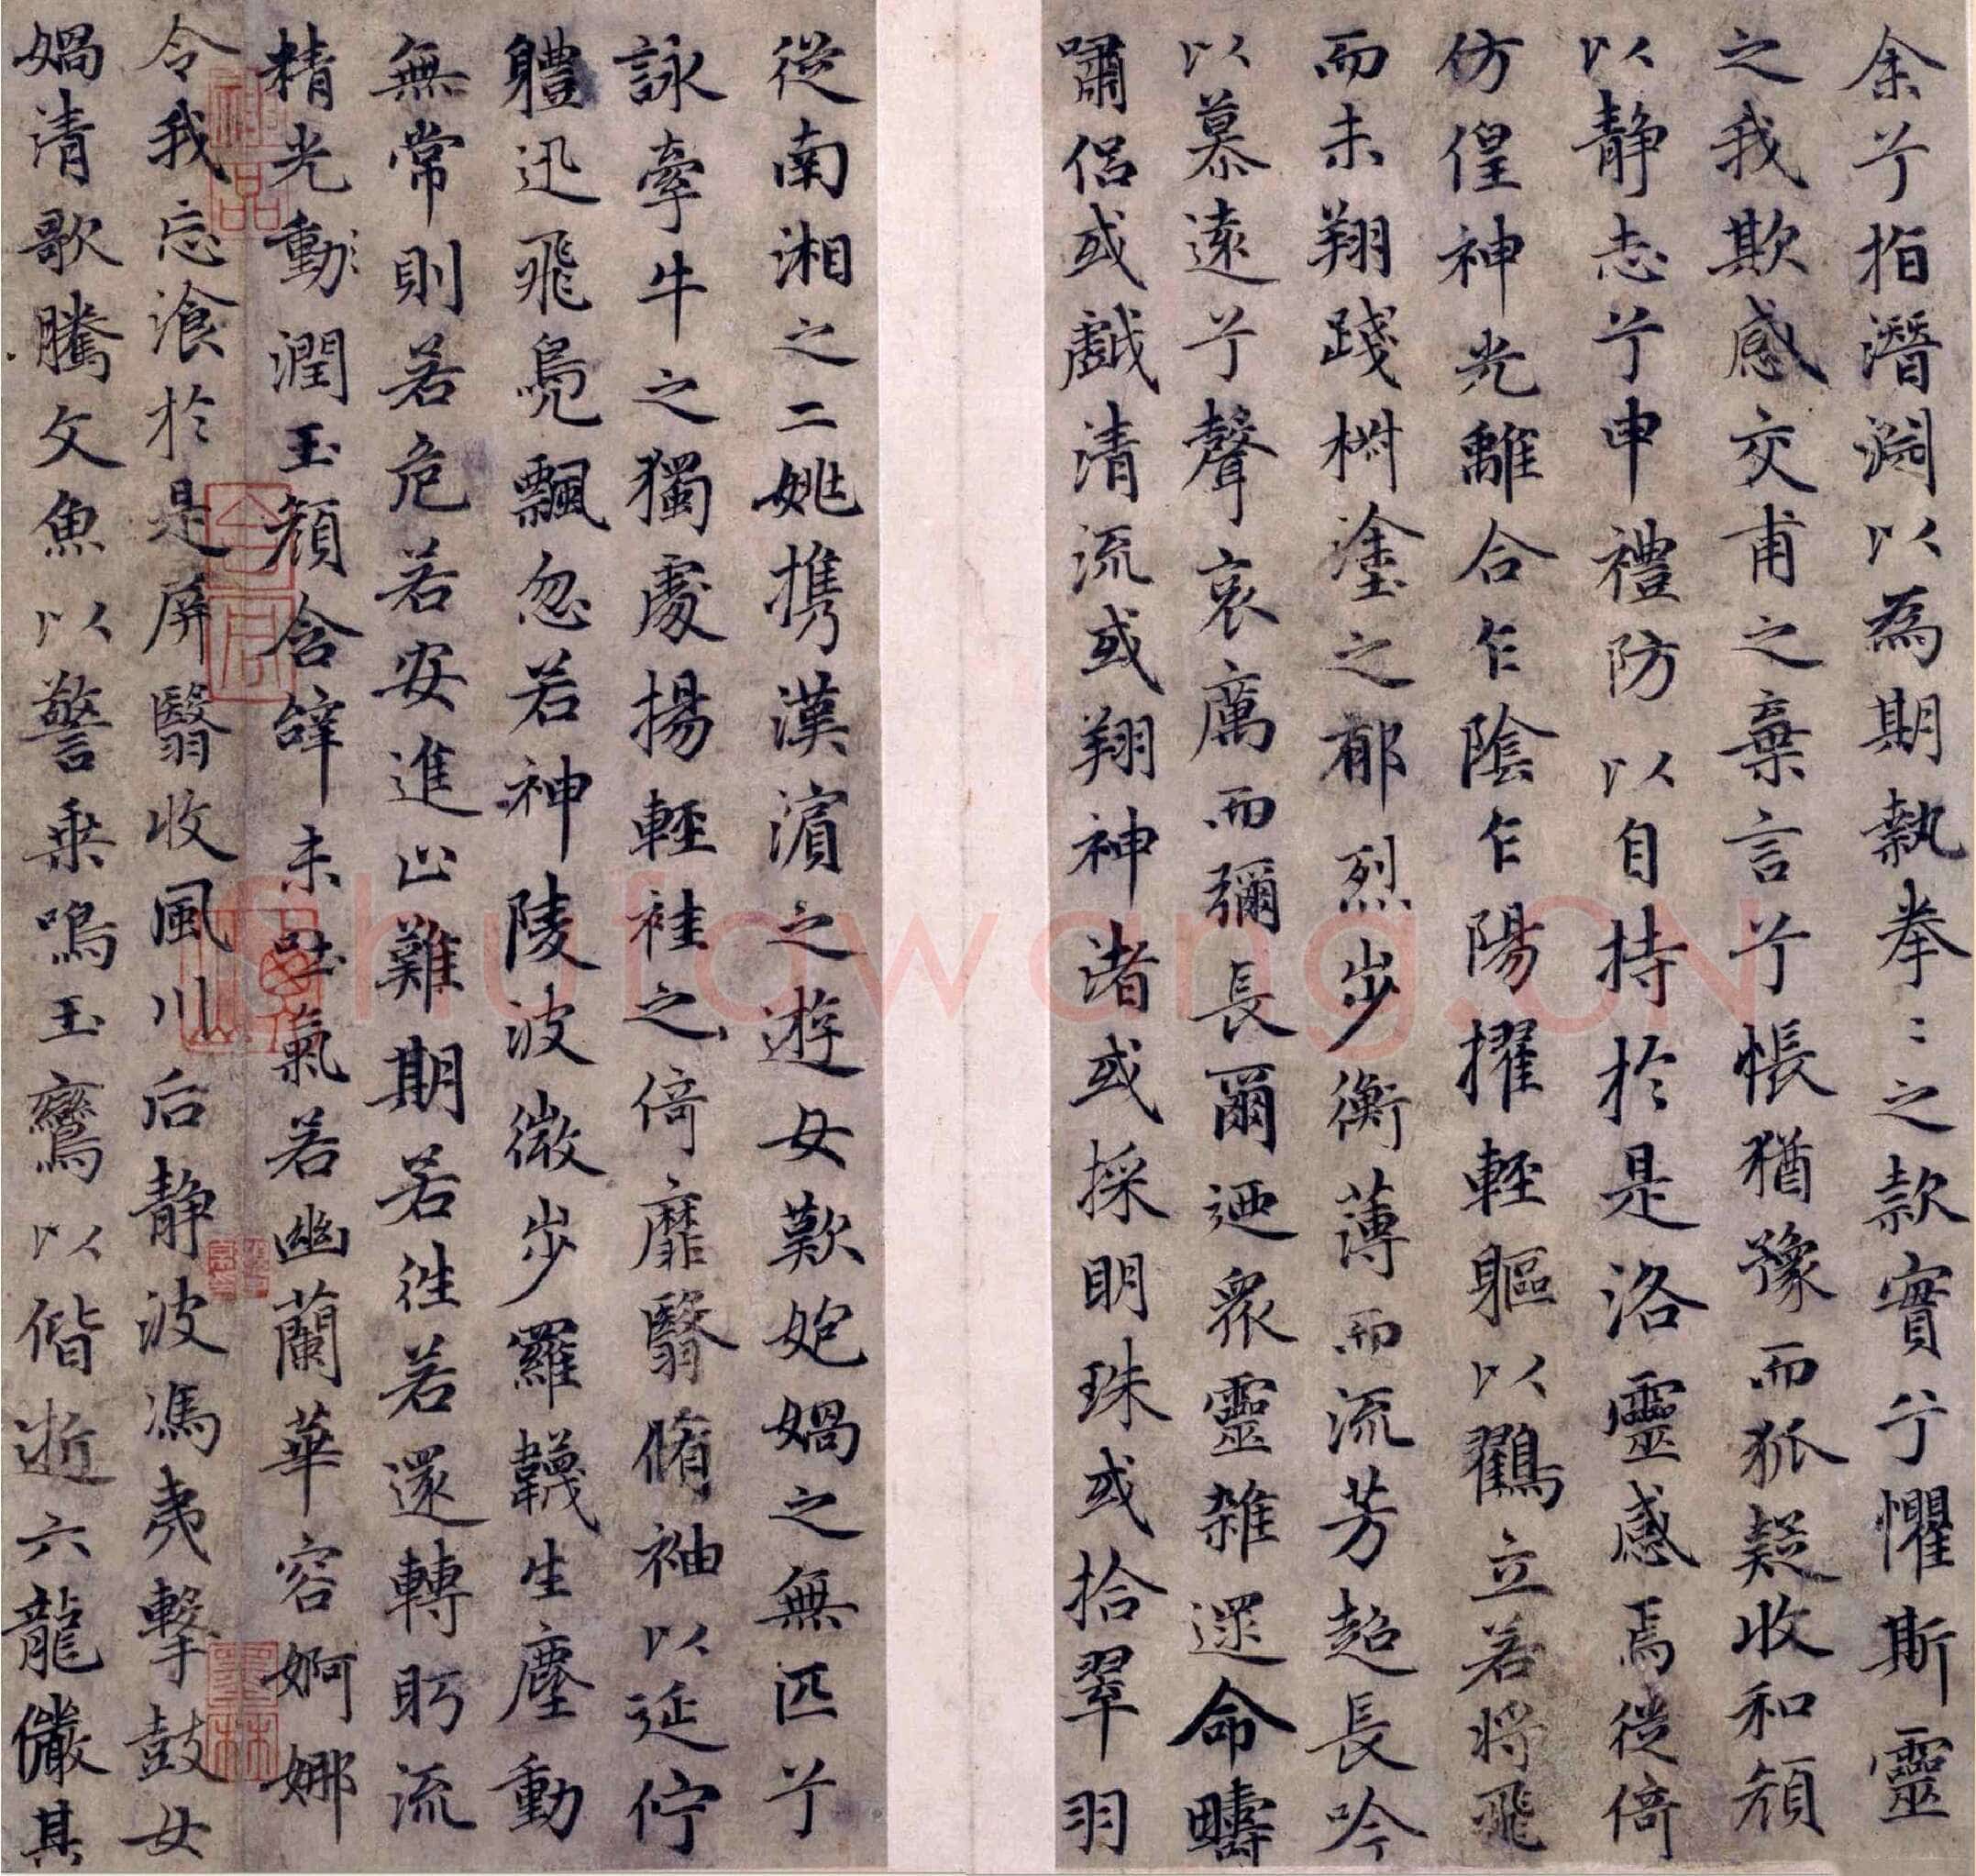 余兮指潛淵以為期執拳〻之款實兮懼斯靈
之我欺感交甫之棄言兮悵猶豫而狐疑收和顏
以靜志兮申禮防以自持於是洛靈感焉徙倚
仿偟神光離合乍陰乍陽擢輕軀以鸖立若將飛
而未翔踐椒塗之郁烈步衡薄而流芳超長吟
以慕遠兮聲哀厲而彌長爾迺衆靈雜遝命疇
嘯侶或戲清流或翔神渚或採明珠或拾翠羽
從南湘之二姚携漢濵之遊女歎㚿媧之無匹兮
詠牽牛之獨處揚輕袿之倚靡翳脩袖以延佇
軆迅飛鳧飄忽若神陵波微步羅韈生塵動
無常則若危若安進止難期若往若還轉眄流
精光動潤玉顏含辝未吐氣若幽蘭華容婀娜
令我忘飡於是屏翳收風川后靜波馮夷擊鼓女
媧清歌騰文魚以警乘鳴玉鸞以偕逝六龍儼其
神品
墨林
Shufawang.CN